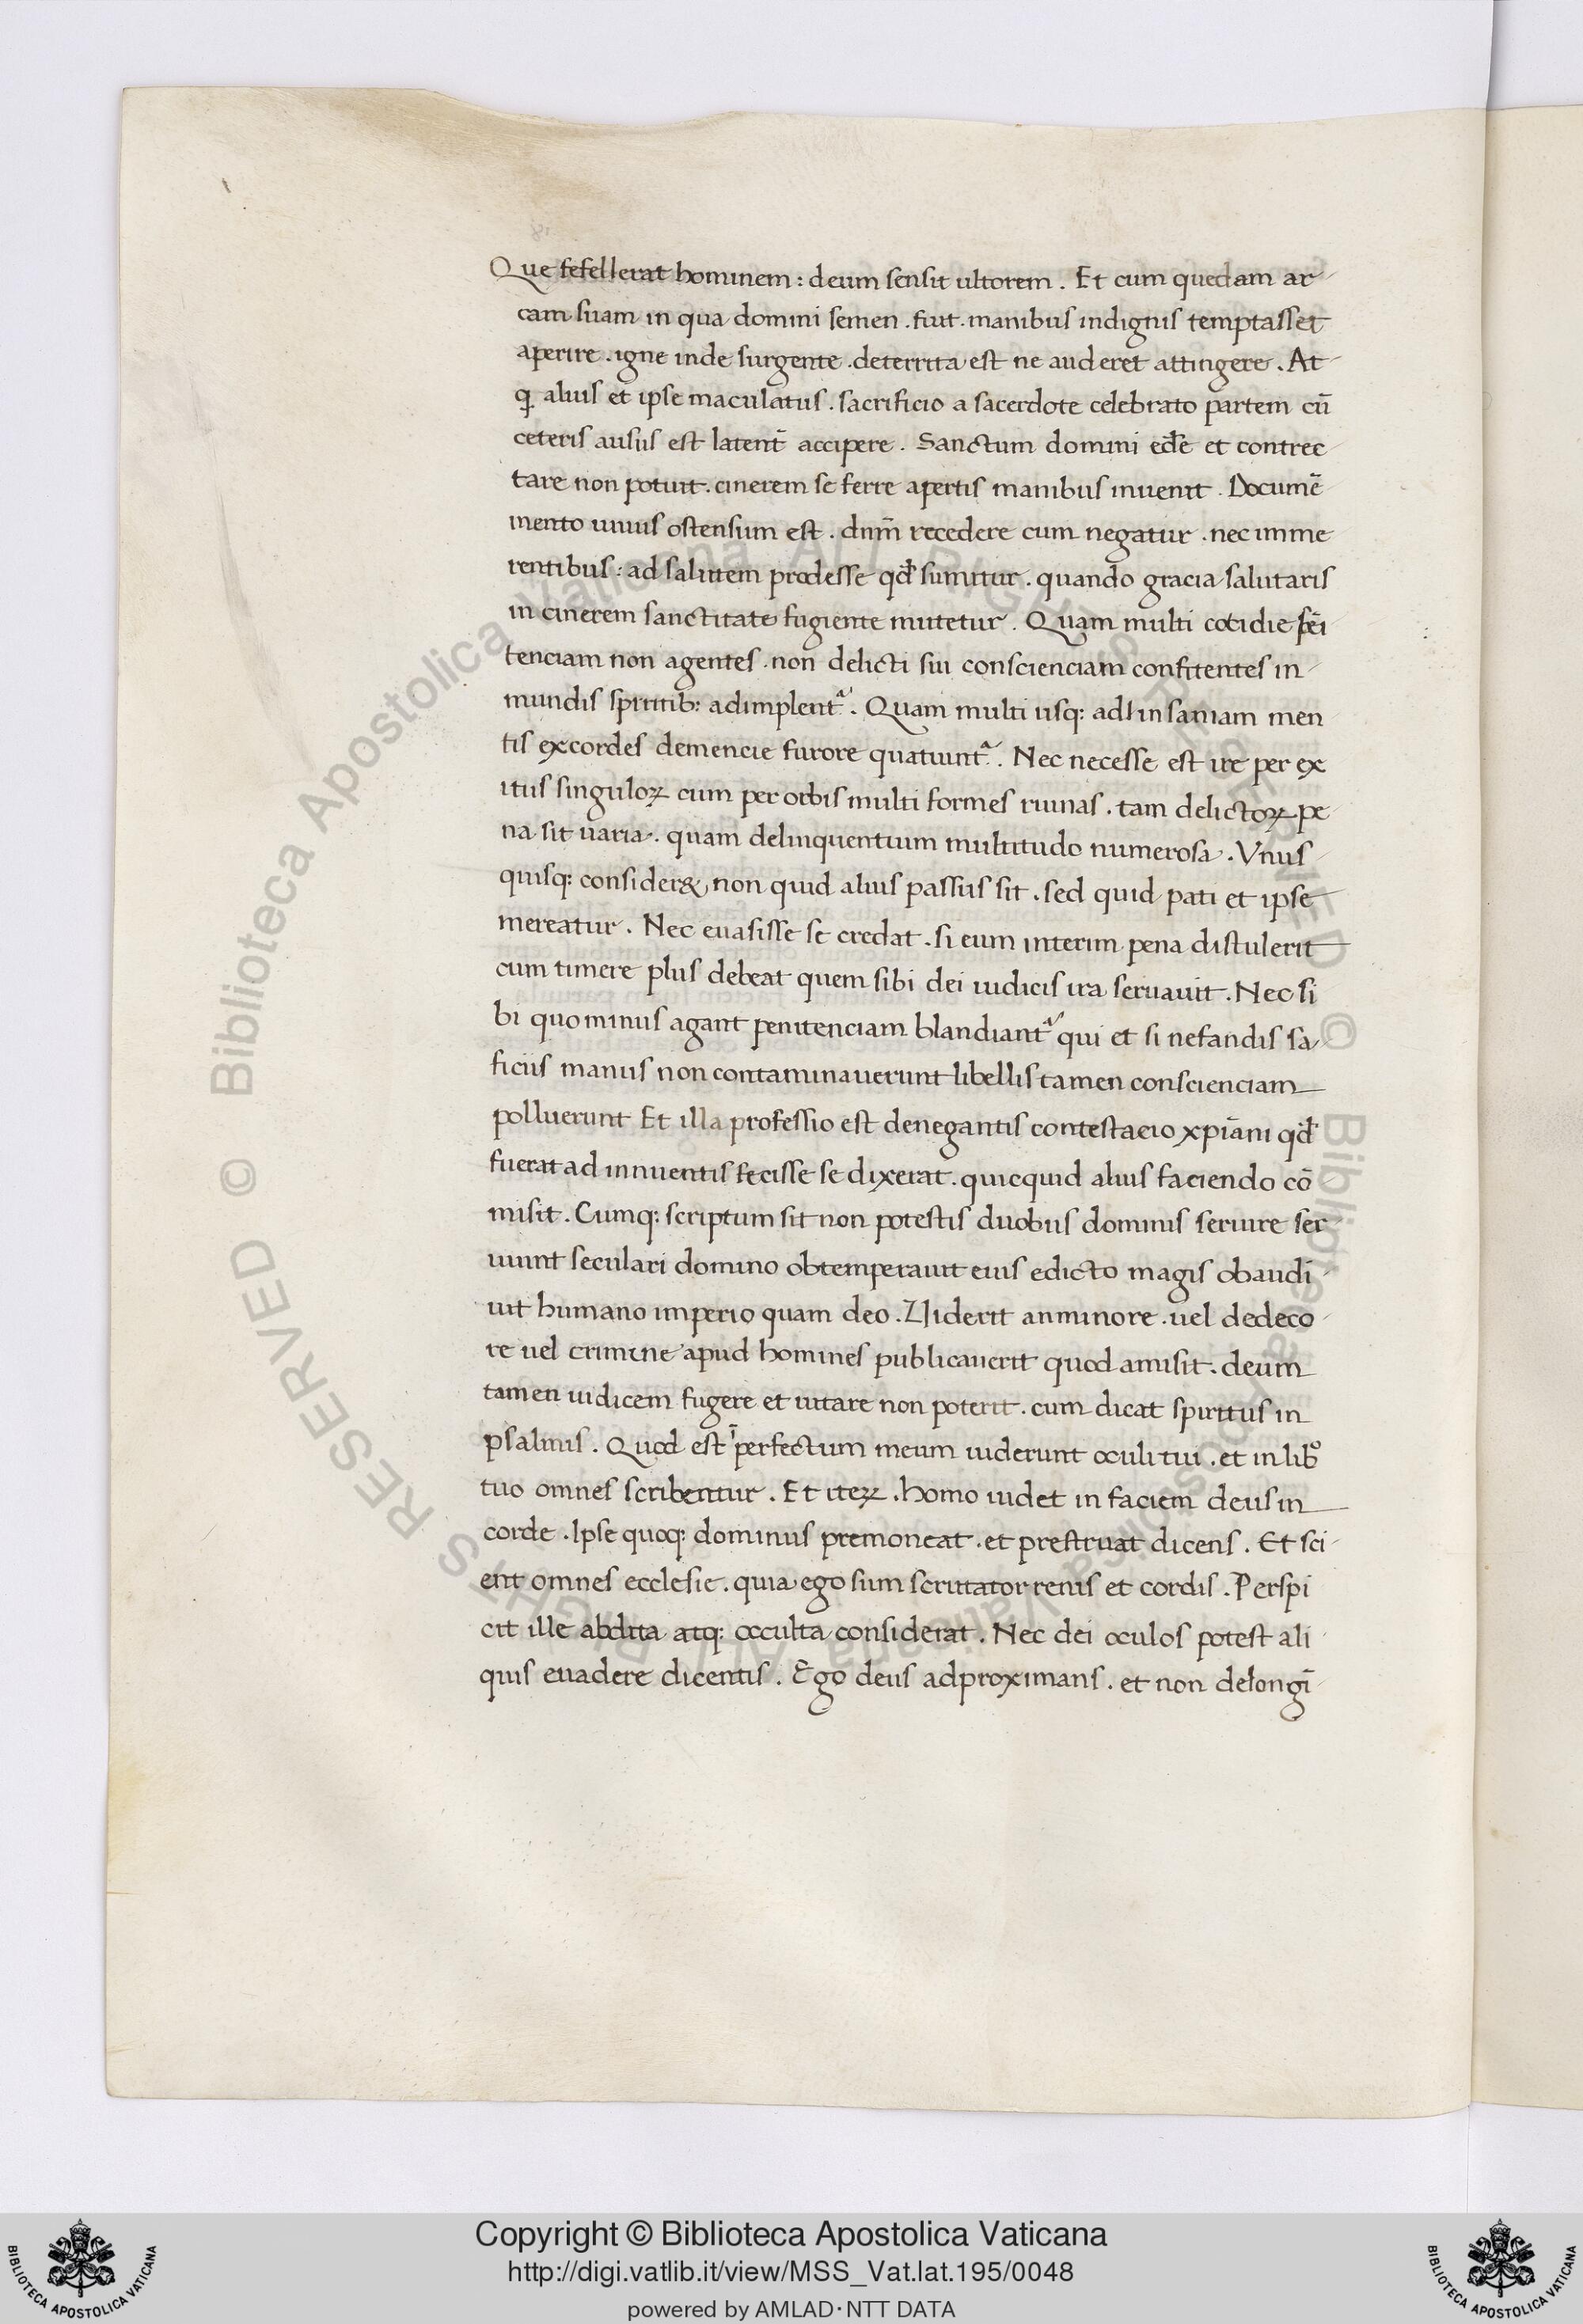 Que fefellerat hominem : deum sensit ultorem . Et cum quedam ar
cam suam in qua domini semen . fiut . manibus indignis temptasset
aperire . igne inde surgente . deterrita est ne auderet attingere . At
alius et ipse maculatus . sacrificio a sacerdote celebrato partem cū
ceteris ausus est latent̄ accipere . Sanctum domini edē et contrec
tare non potuit . cinerem se ferre apertis manibus inuenit . Documē
mento unius ostensum est . dnm̄ recedere cum negatur . nec imme
rentibus : ad salutem prodesse qđ sumitur . quando gracia salutaris
in cinerem sanctitate fugiente mutetur . Quam multi cotidie
tenciam non agentes . non delicti sui conscienciam confitentes in
mundis spiritib: adimplent̄ᵃ . Quam multi usq: ad insaniam men
tis excordes demencie furore quatiunt̄ᵃ . Nec necesse est ire per ex
itus singuloꝝ cum per orbis multi formes ruinas . tam delictoꝝ pe
na sit uaria . quam delinquentium multitudo numerosa . Vnus
quisq: consider& non quid alius passus sit . sed quid pati et ipse
mereatur . Nec euasisse se credat . si eum interim pena distulerit
cum timere plus debeat quem sibi dei iudicis ira seruauit . Nec si
bi quominus agant penitenciam blandiant̄ᵃ qui et si nefandis sa
ficiis manus non contaminauerunt libellis tamen conscienciam
polluerunt Et illa professio est denegantis contestacio xpīani qđ
fuerat ad innuentis fecisse se dixerat . quicquid alius faciendo cō
misit . Cumq: scriptum sit non potestis duobus dominis seruire ser
uiunt seculari domino obtemperauit eius edicto magis obaudi
uit humano imperio quam deo . Uiderit an minore . uel dedeco
re uel crimine apud homines publicauerit quod amisit . deum
tamen iudicem fugere et uitare non poterit . cum dicat spiritus in
psalmis . Quod est īperfectum meum uiderunt oculi tui . et in libº
tuo omnes scribentur . Et iteꝝ . homo uidet in faciem deus in
corde . Ipse quoq: dominus premoneat . et prestruat dicens . Et sci
ent omnes ecclesie . quia ego sum scrutator renis et cordis . Perspi
cit ille abdita atq: occulta considerat . Nec dei oculos potest ali
quis euadere dicentis . Ego deus adproximans . et non delongī
© Biblioteca Apostolica Vaticana ALL RIGHTS RESERVED © Biblioteca Apostolica Vaticana ALL RIGHTS RESERVED
BIBLIOTECA APOSTOLICA VATICANA
Copyright © Biblioteca Apostolica Vaticana
http://digi.vatlib.it/view/MSS_Vat.lat.195/0048
powered by AMLAD·NTT DATA
BIBLIOTECA APOSTOLICA VATICANA